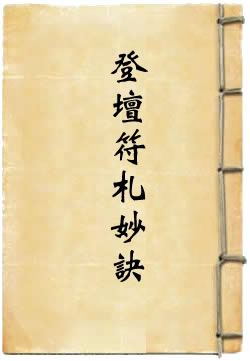 登壇符札妙訣